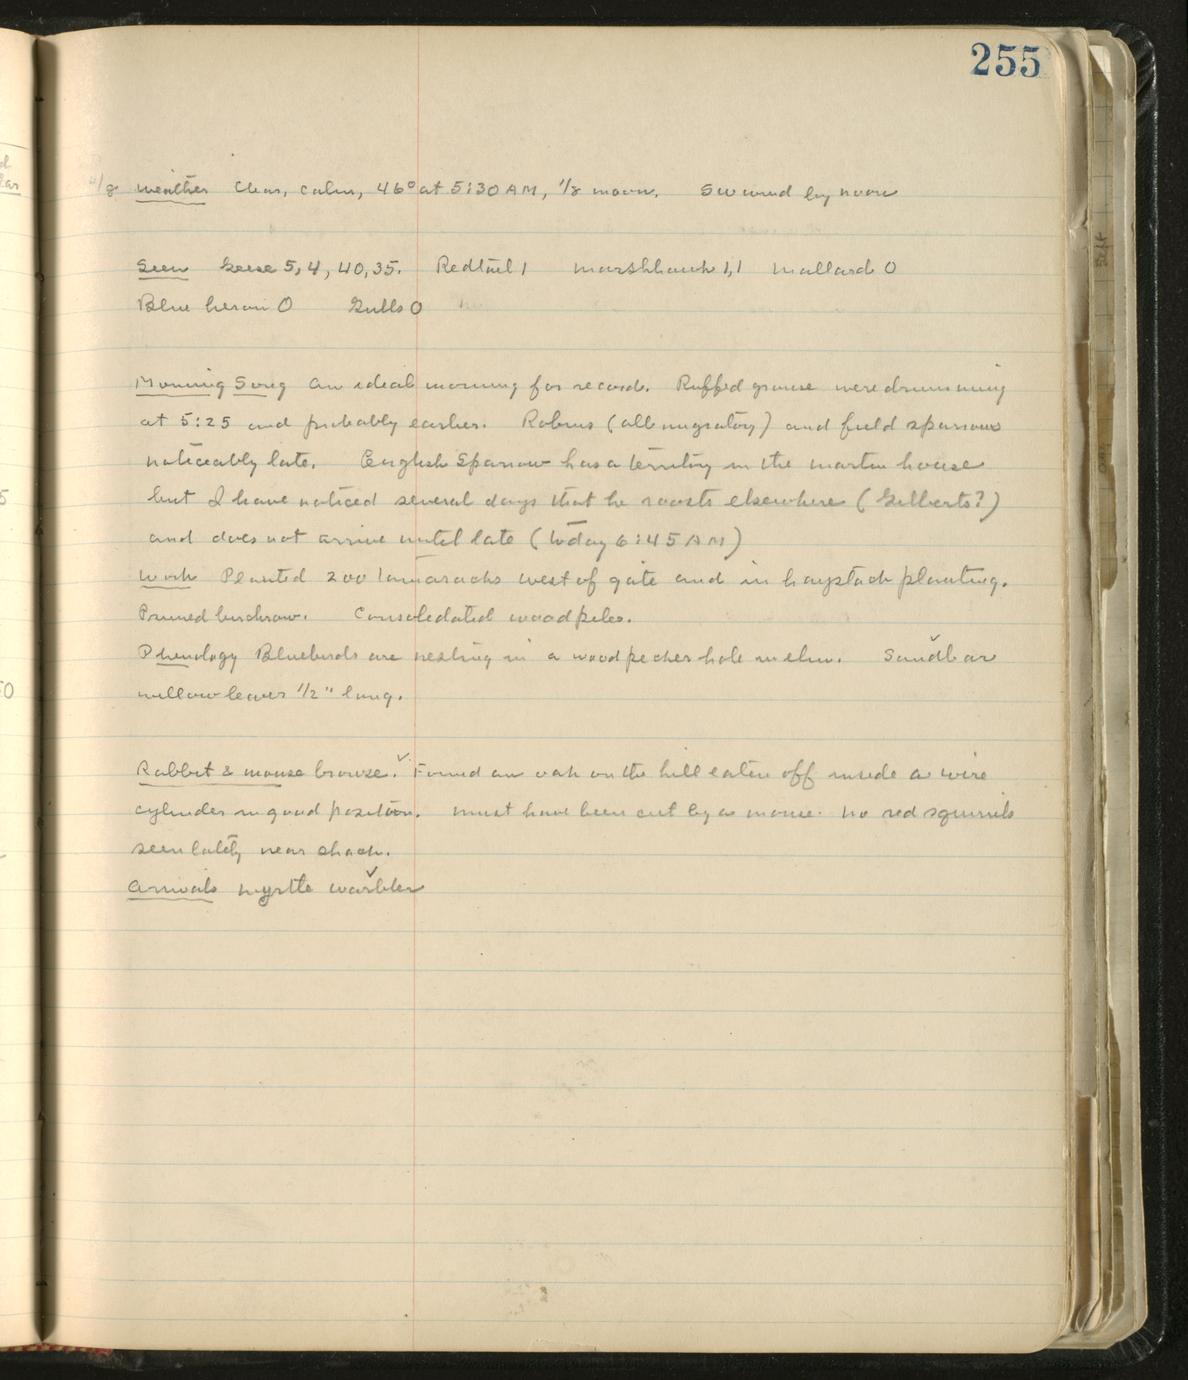 255
4/8 Weather Clear, calm, 46° at 5:30 AM, 1/8 moon. SW wind by noon
Seen Geese 5, 4, 40, 35. Redtail 1 marshhawk 1,1 mallard 0
Blue heron 0 Gulls 0
Morning Song An ideal morning for record. Ruffed grouse were drumming
at 5:25 and probably earlier. Robins (all migratory) and field sparrows
noticeably late. English Sparrow has a territory in the martin house
but I have noticed several days that he roosts elsewhere (Gilberts?)
and does not arrive until late (today 6:45 AM)
Work Planted 200 tamaracks west of gate and in haystack planting.
Pruned birchrow. Consolidated woodpiles.
Phenology Bluebirds are nesting in a woodpecker hole in elm. Sandbar
willow leaves 1/2" long.
Rabbit & mouse browse. Found an oak on the hill eaten off inside a wire
cylinder in good position. must have been cut by a mouse. No red squirrels
seen lately near shack.
Arrivals myrtle warbler